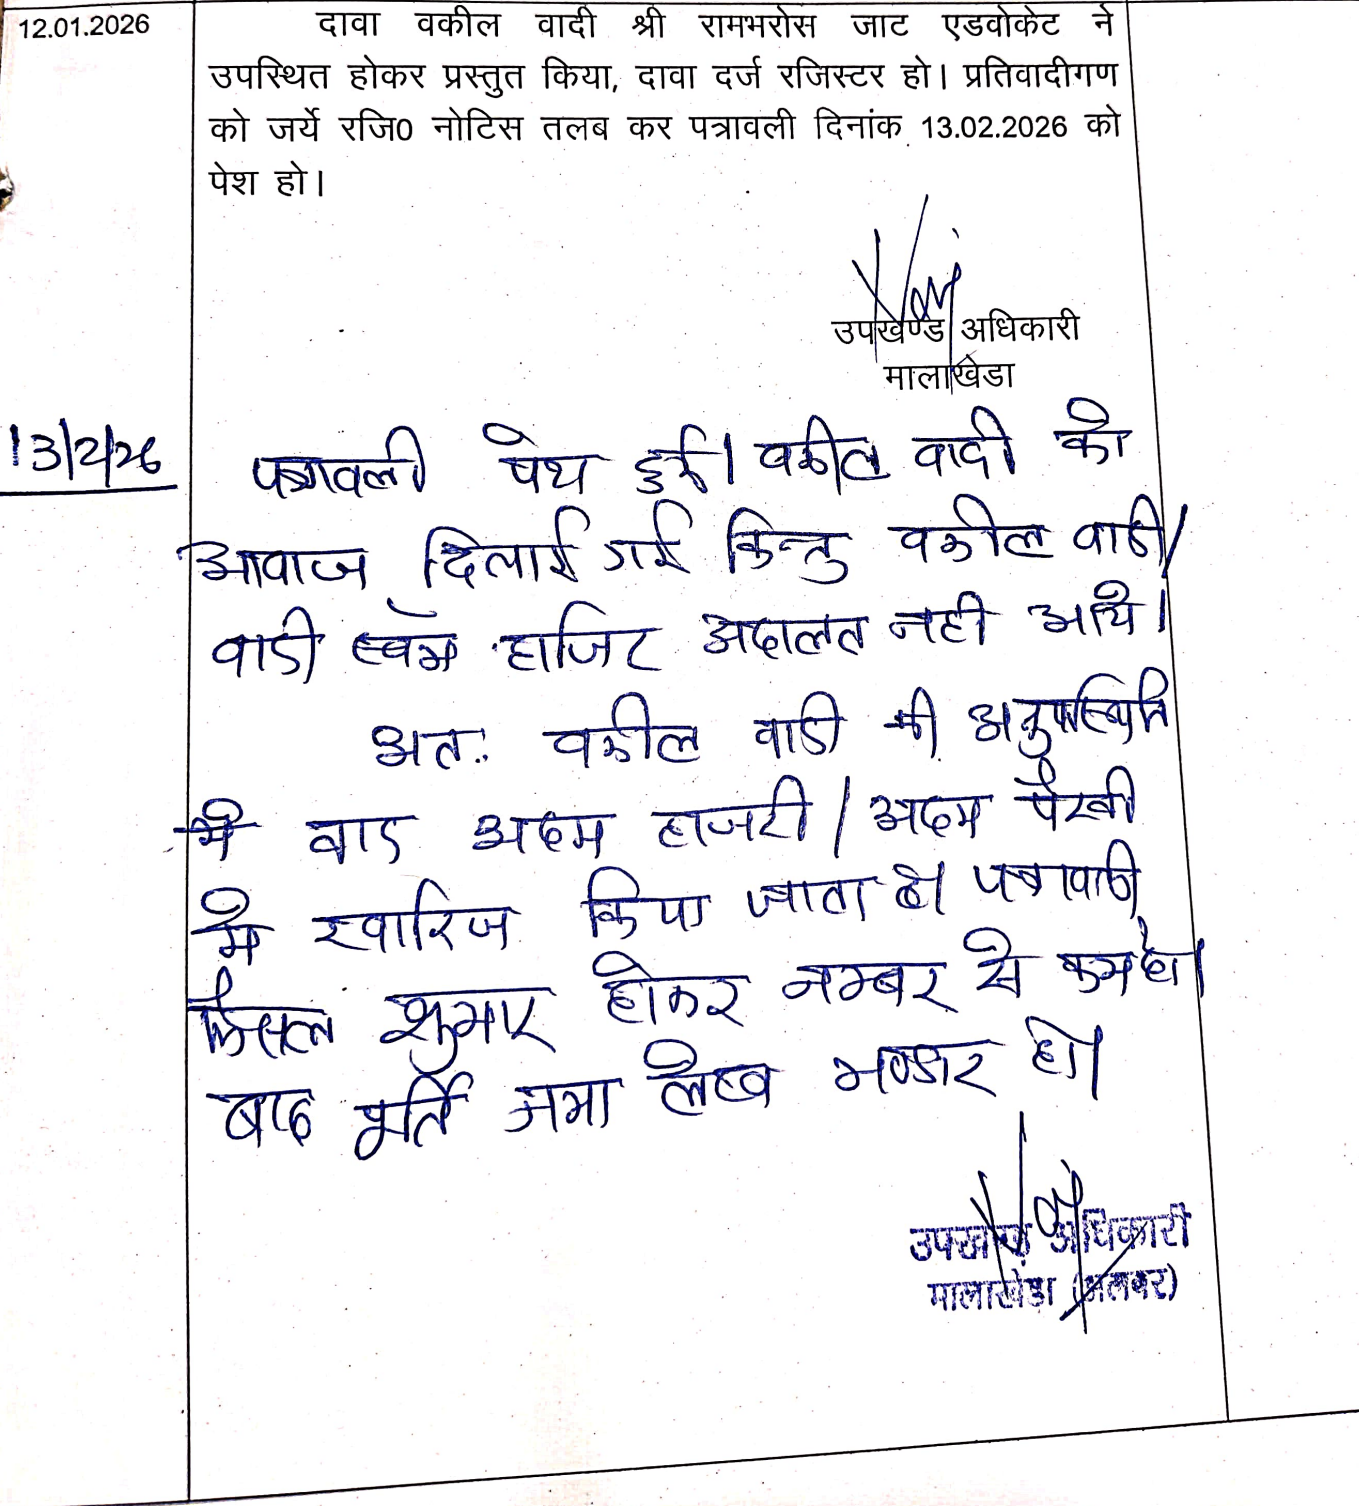 12.01.2026
दावा वकील वादी श्री रामभरोस जाट एडवोकेट ने
उपस्थित होकर प्रस्तुत किया, दावा दर्ज रजिस्टर हो। प्रतिवादीगण
को जर्ये रजि0 नोटिस तलब कर पत्रावली दिनांक 13.02.2026 को
पेश हो।
उपखण्ड अधिकारी
मालाखेडा
13/2/26
पत्रावली पेश हुई। वकील वादी को
आवाज दिलाई गई किन्तु वकील वादी/
वादी स्वंम हाजिर अदालत नही आये।
अतः वकील वादी की अनुपस्थिति
मे वाद अदम हाजरी/अदम पैरवी
मे खारिज किया जाता है। पत्रावली
फैसल शुमार होकर नम्बर से कम हो।
बाद पूर्ति जमा लेख भण्डार हो।
उपखण्ड अधिकारी
मालाखेडा (अलवर)